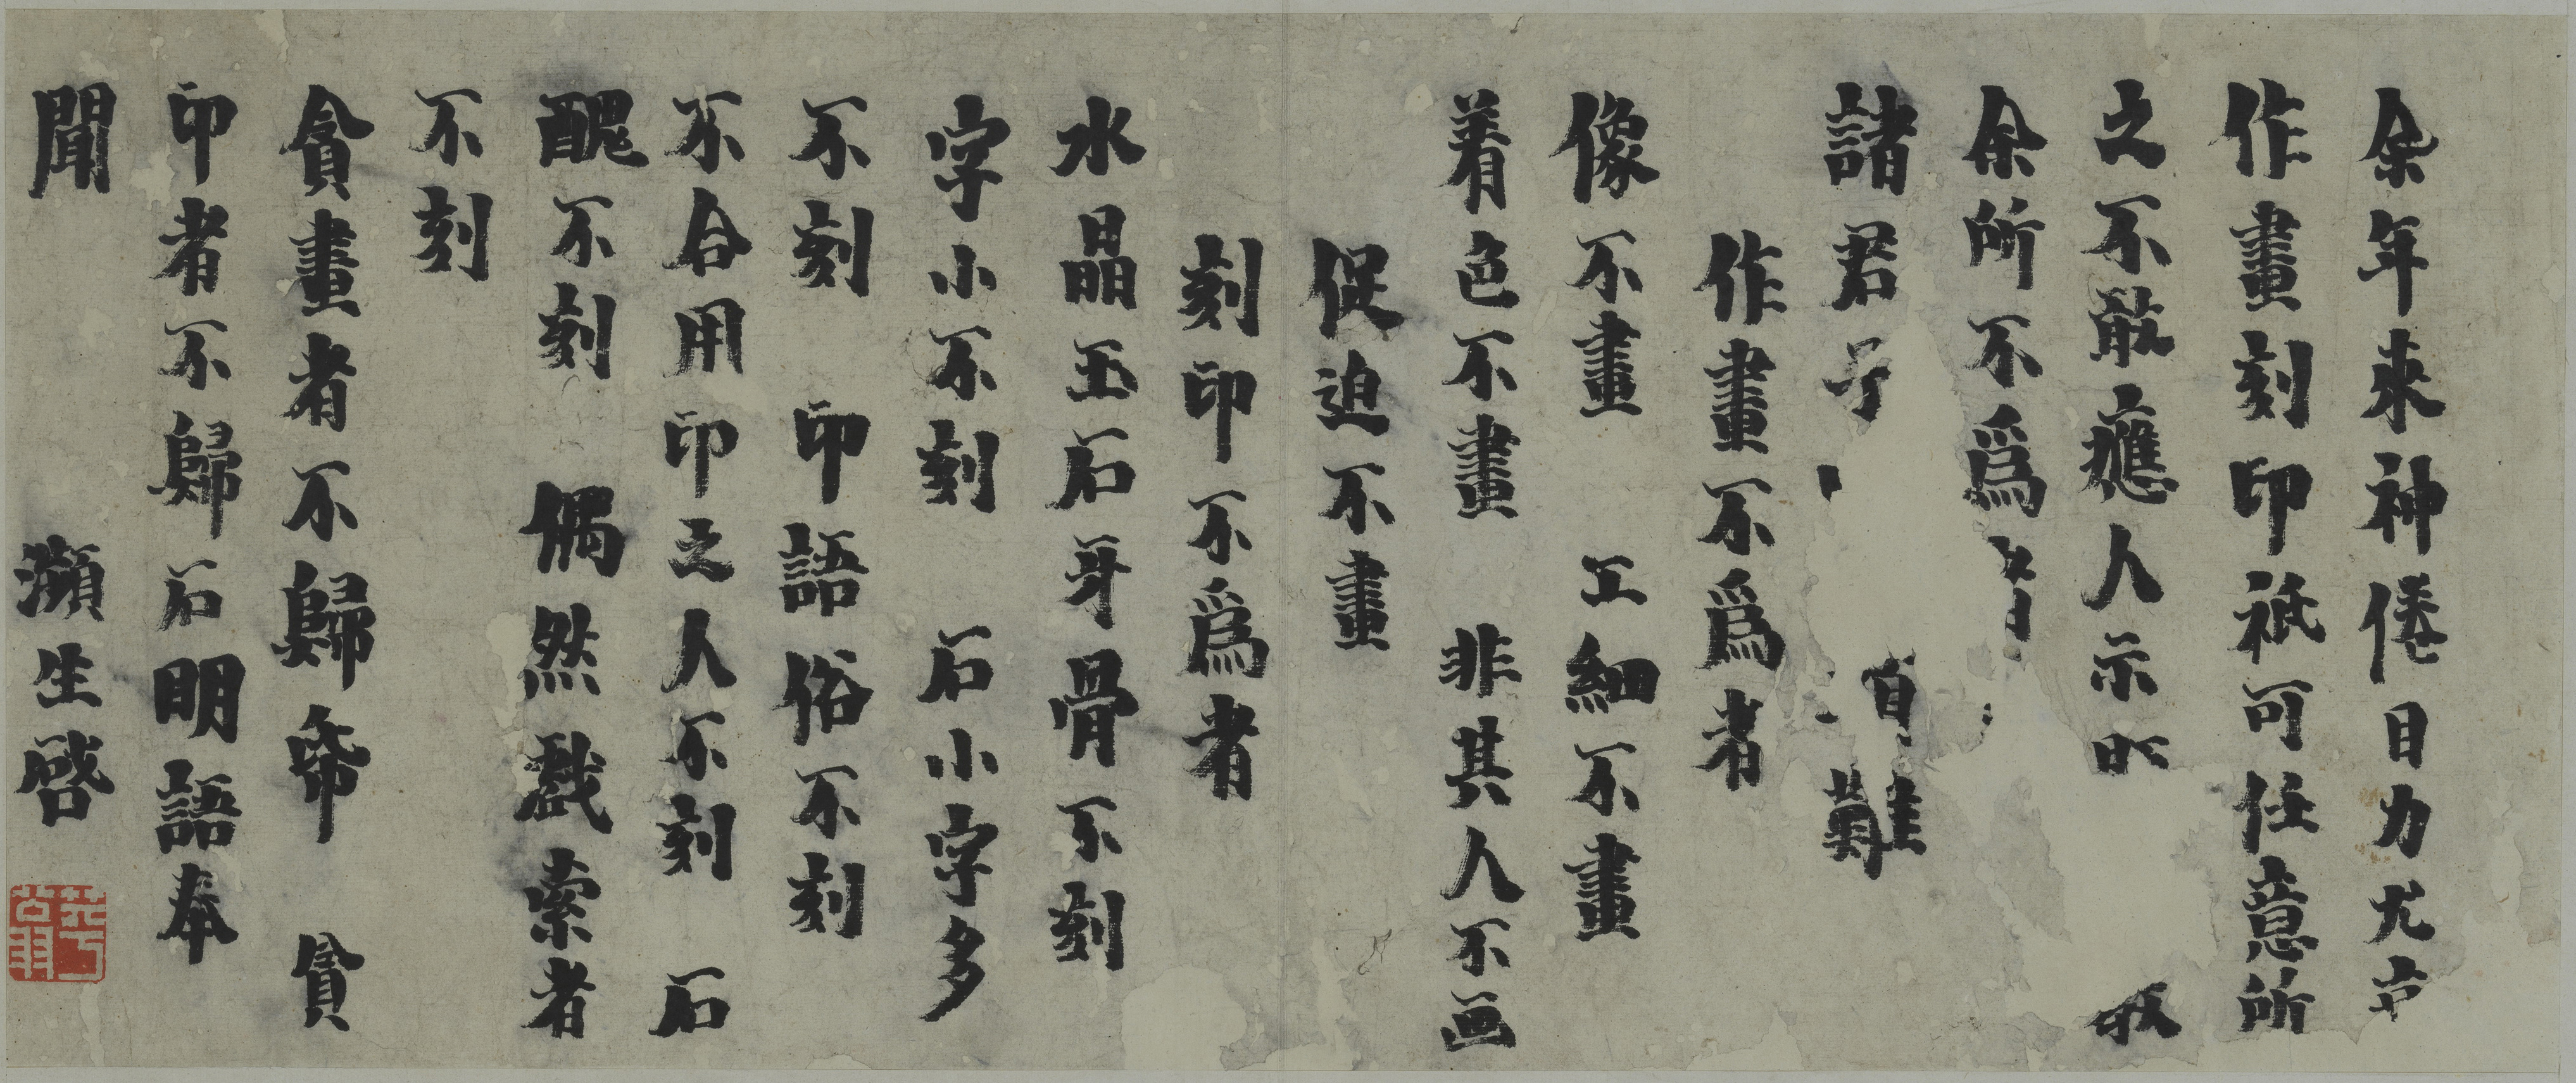 余年來神倦目力尤
作畫刻印祇可任意所
之不敢應人示 敬
余所不爲
諸君子 難
作畫不爲者
像不畫 工細不畫
着色不畫 非其人不画
促迫不畫
刻印不爲者
水晶玉石牙骨不刻
字小不刻 石小字多
不刻 印語俗不刻
不合用印之人不刻 石
醜不刻 偶然戲索者
不刻
貪畫者不歸帋 貪
印者不歸石明語奉
聞 瀕生啓